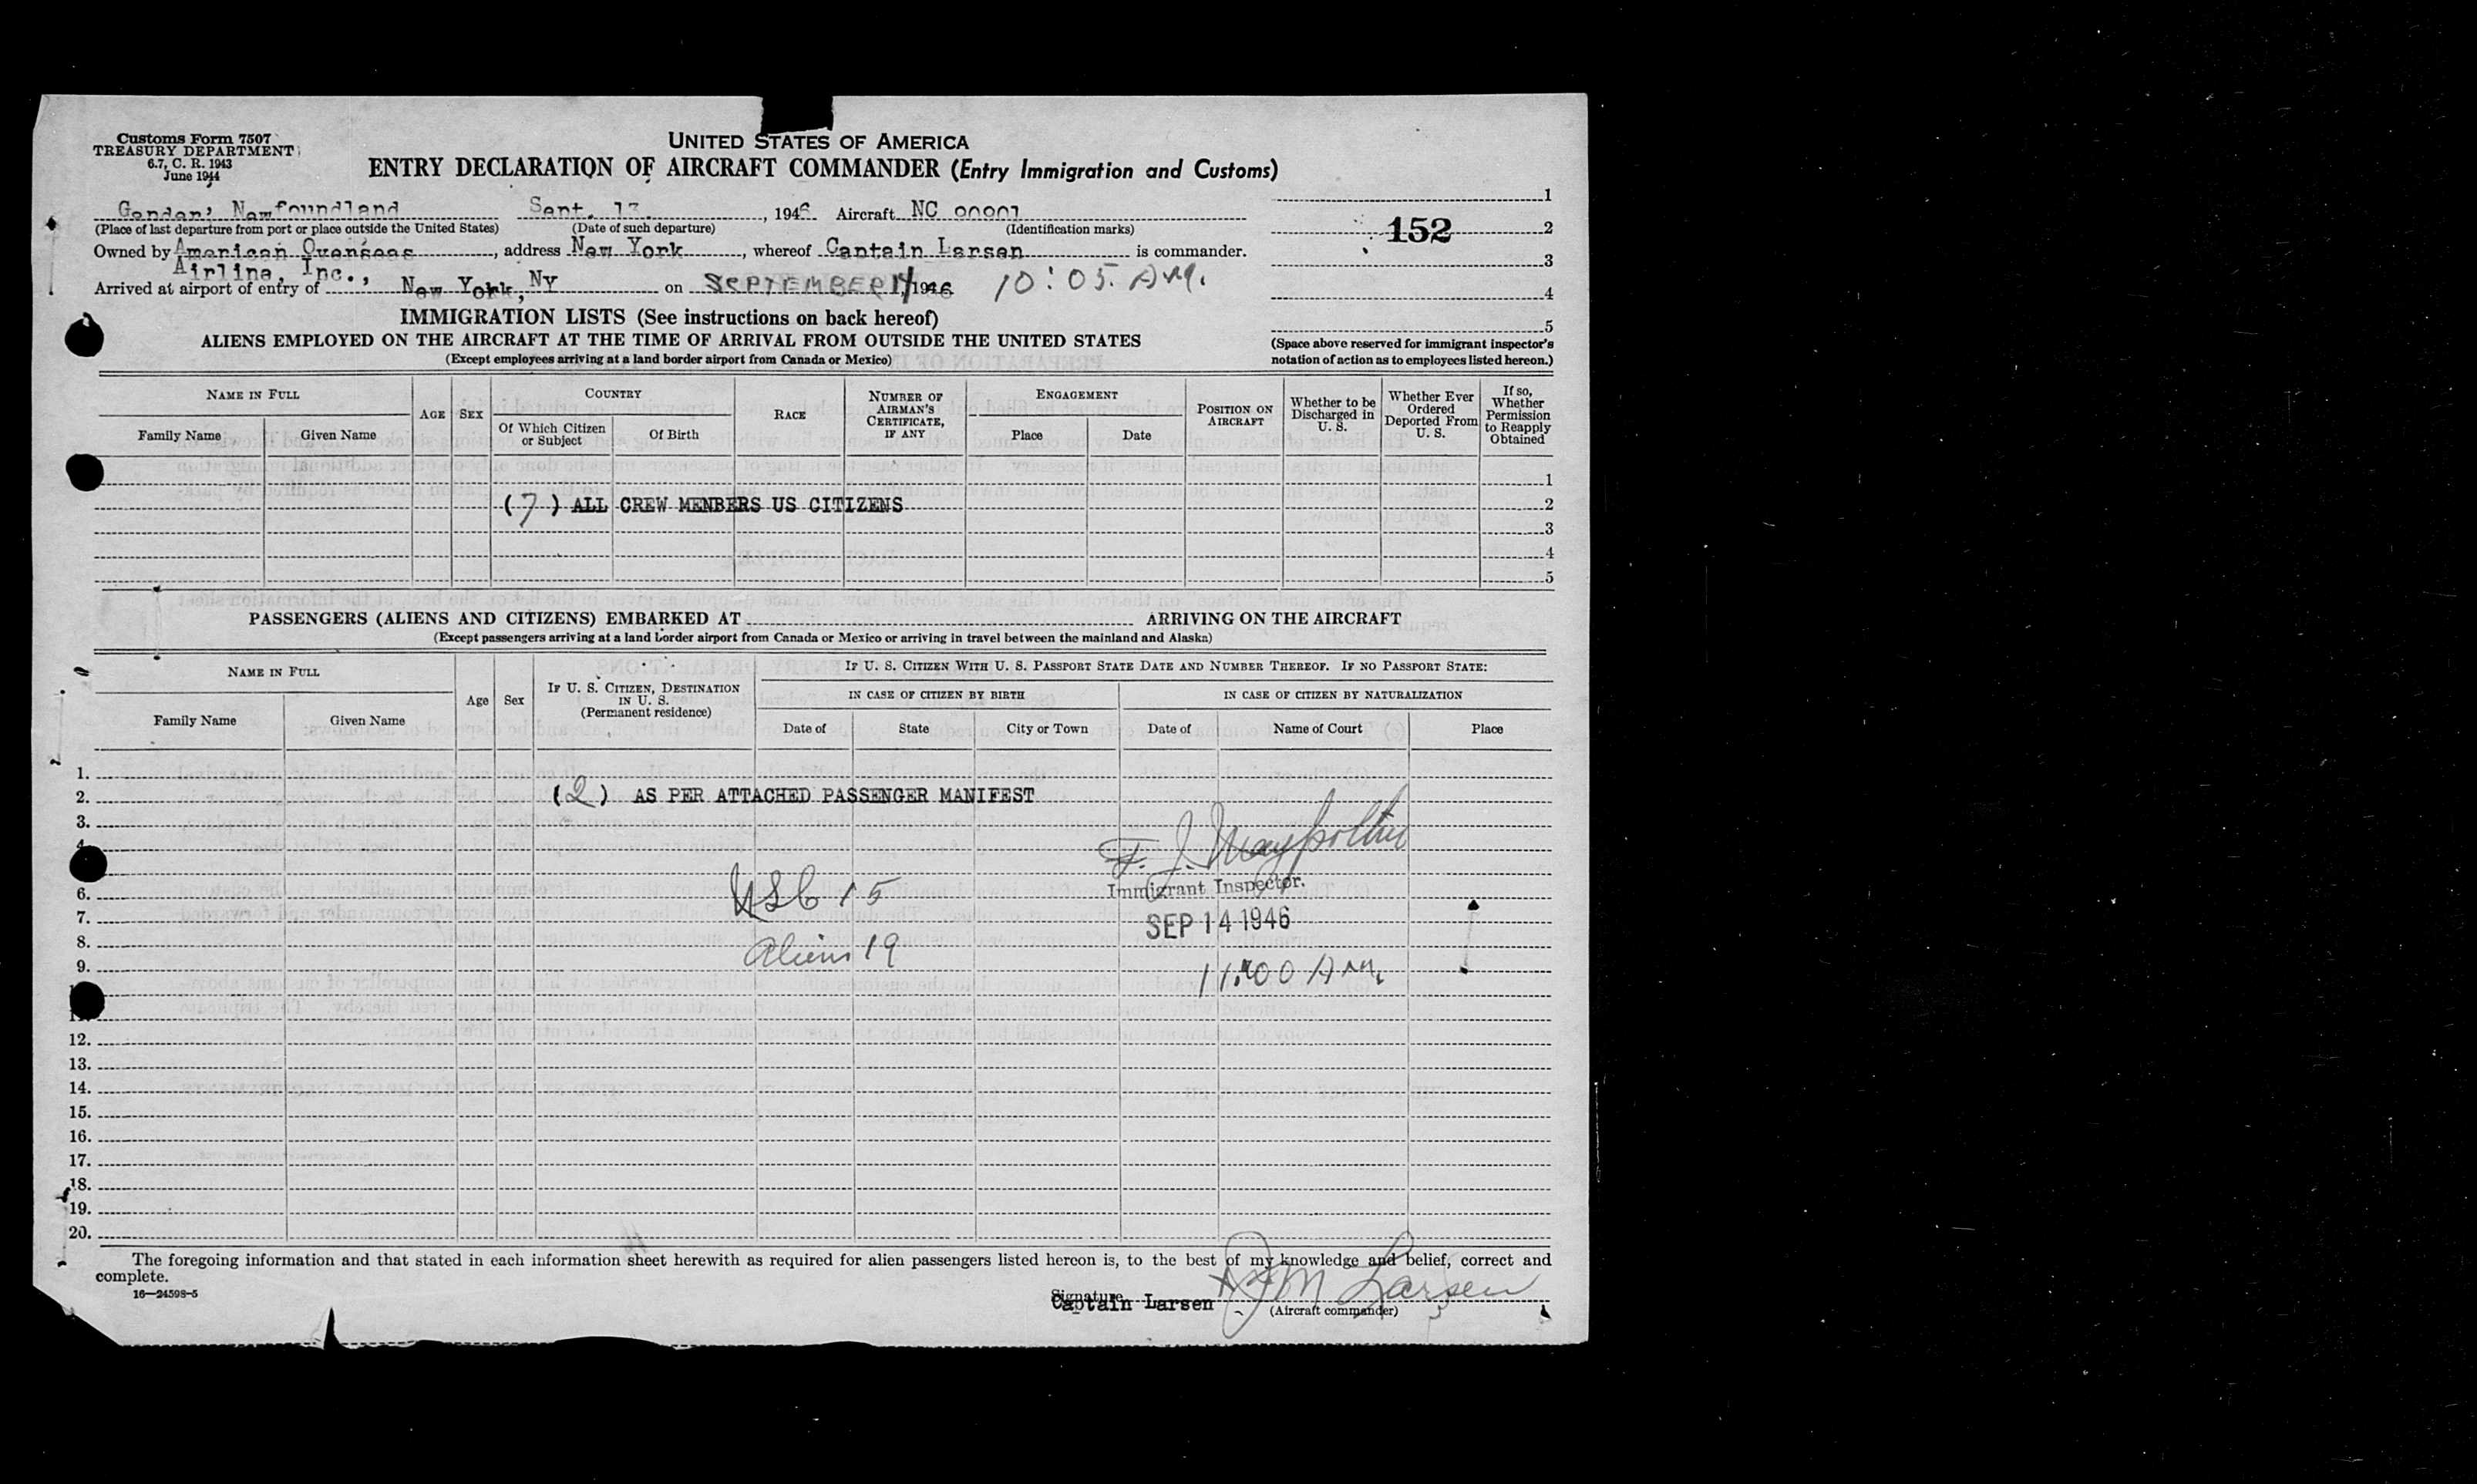 Customs Form 7507
TREASURY DEPARTMENT
6.7, C. R. 1943
June 1944
UNITED STATES OF AMERICA
ENTRY DECLARATION OF AIRCRAFT COMMANDER (Entry Immigration and Customs)
Gander, Newfoundland Sept. 13, 1946 Aircraft NC
(Place of last departure from port or place outside the United States) (Date of such departure) (Identification marks)
Owned by American Overseas, address New York, whereof Captain Larsen is commander.
Airline, Inc.,
Arrived at airport of entry of New York, NY on SEPTEMBER 14 1946 10:05 AM.
1
152 2
3
4
5
(Space above reserved for immigrant inspector's
notation of action as to employees listed hereon.)
IMMIGRATION LISTS (See instructions on back hereof)
ALIENS EMPLOYED ON THE AIRCRAFT AT THE TIME OF ARRIVAL FROM OUTSIDE THE UNITED STATES
(Except employees arriving at a land border airport from Canada or Mexico)
NAME IN FULL
Family Name Given Name
AGE SEX
COUNTRY
Of Which Citizen or Subject Of Birth
RACE
NUMBER OF AIRMAN'S CERTIFICATE, IF ANY
ENGAGEMENT
Place Date
POSITION ON AIRCRAFT
Whether to be Discharged in U. S.
Whether Ever Ordered Deported From U. S.
If so, Whether Permission to Reapply Obtained
1
(7) ALL CREW MENBERS US CITIZENS 2
3
4
5
PASSENGERS (ALIENS AND CITIZENS) EMBARKED AT ARRIVING ON THE AIRCRAFT
(Except passengers arriving at a land border airport from Canada or Mexico or arriving in travel between the mainland and Alaska)
NAME IN FULL
Family Name Given Name
Age Sex
IF U. S. CITIZEN, DESTINATION IN U. S.
(Permanent residence)
IF U. S. CITIZEN WITH U. S. PASSPORT STATE DATE AND NUMBER THEREOF. IF NO PASSPORT STATE:
IN CASE OF CITIZEN BY BIRTH IN CASE OF CITIZEN BY NATURALIZATION
Date of State City or Town Date of Name of Court Place
1.
2. (2) AS PER ATTACHED PASSENGER MANIFEST
3.
4
F. J.
6. USC 15 Immigrant Inspector.
7. SEP 14 1946
8. Aliens 19
9. 11:00 AM.
11.
12.
13.
14.
15.
16.
17.
18.
19.
20.
The foregoing information and that stated in each information sheet herewith as required for alien passengers listed hereon is, to the best of my knowledge and belief, correct and
complete.
16—24598-5
Signature
Captain Larsen M Larsen
(Aircraft commander)